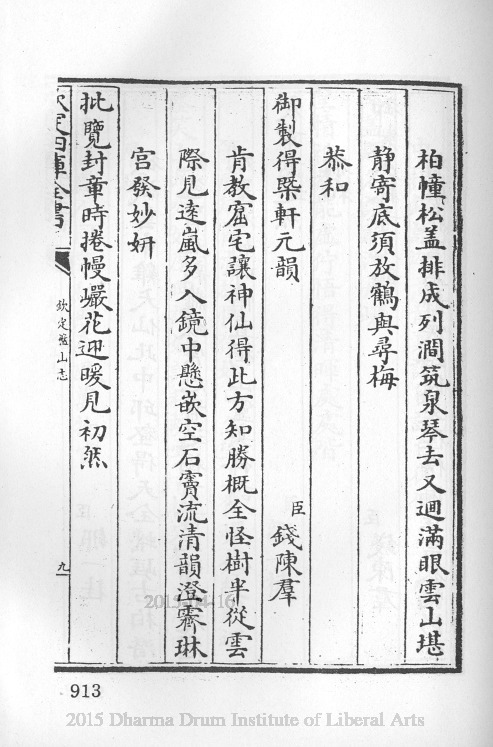 柏幢松盖排成列澗筑泉琴去又迴滿眼雲山堪
静寄底須放鶴與尋梅
恭和
御製得槩軒元韻 臣錢陳羣
肯教窟宅讓神仙得此方知勝概全怪樹半從雲
際見遠嵐多入鏡中懸嵌空石竇流清韻澄霽琳
宫發妙妍
批覽封章時捲幔巗花迎暖見初然
欽定四庫全書
欽定盤山志
九
913
2015 Dharma Drum Institute of Liberal Arts